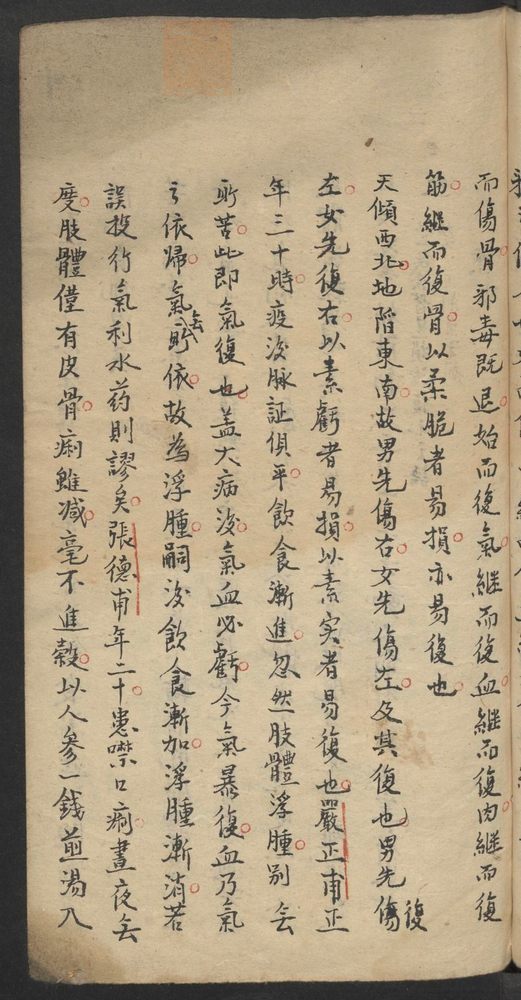 而傷骨邪毒既退始而復氣継而復血継而復肉継而復
筋継而復骨以柔脆者易損亦易復也
天傾西北地陷東南故男先傷右女先傷左及其復也男先傷復
左女先復右以素虧者易損以素实者易復也嚴正甫正
年三十時疫後脉証俱平飲食漸進忽然肢體浮腫别無
所苦此即氣復也盖大病後氣血必虧今氣暴復血乃氣
之依歸氣無所依故為浮腫嗣後飲食漸加浮腫漸消若
誤投行氣利水药則謬矣張德甫年二十患噤口痢晝夜無
度肢體僅有皮骨痢雖减毫不進穀以人參一錢煎湯入